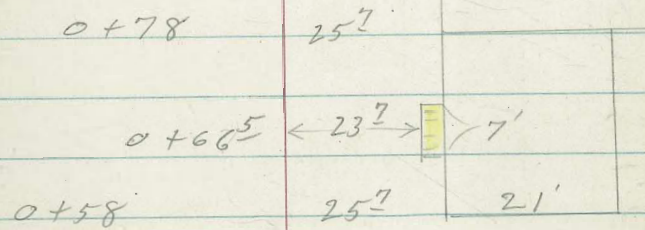 0+78 25⁷
0+66⁵ 23⁷ 7'
0+58 25⁷ 21'